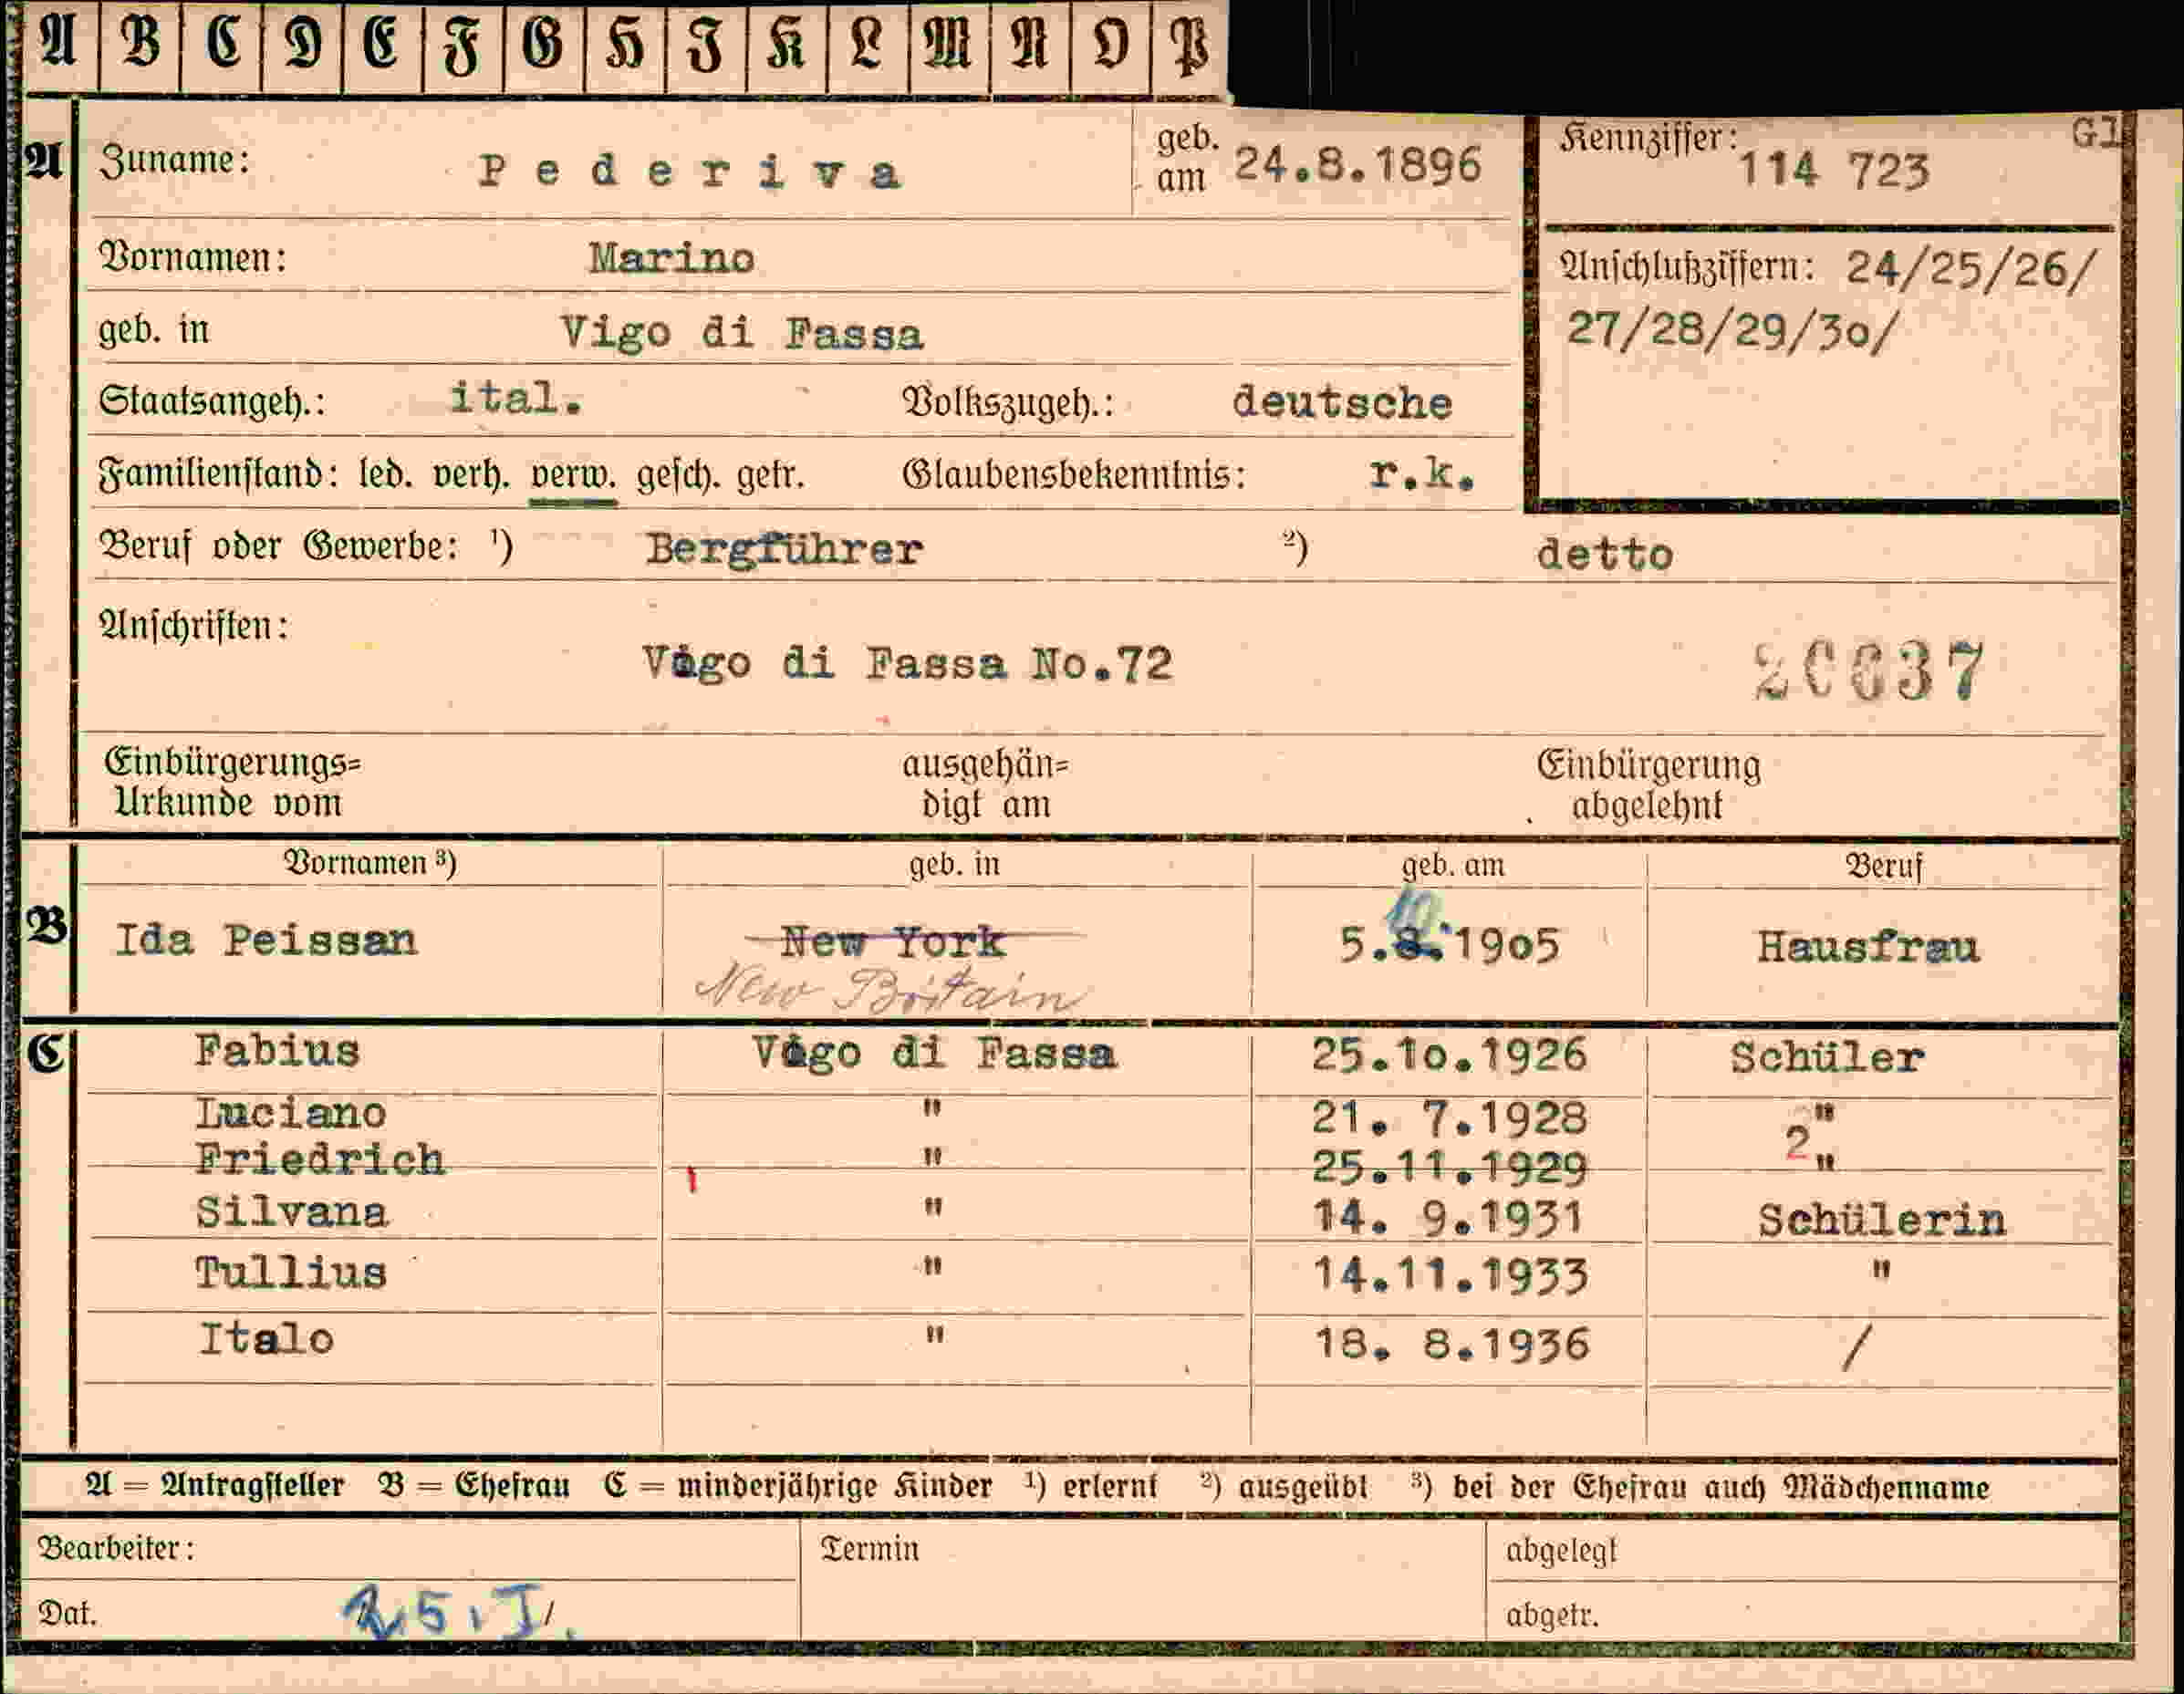 A B C D E F G H I K L M N O P
A Zuname: Pederiva geb. am 24.8.1896 Kennziffer: 114 723 G1
Vornamen: Marino Anschlußziffern: 24/25/26/
geb. in Vigo di Fassa 27/28/29/3o/
Staatsangeh.: ital. Volkszugeh.: deutsche
Familienstand: led. verh. verw. gesch. getr. Glaubensbekenntnis: r.k.
Beruf oder Gewerbe: ¹) Bergführer ²) detto
Anschriften:
Vigo di Fassa No.72 20037
Einbürgerungs= ausgehän= Einbürgerung
Urkunde vom digt am abgelehnt
Vornamen ³) geb. in geb. am Beruf
B Ida Peissan New York 5.10.19o5 Hausfrau
New Britain
C Fabius Vigo di Fassa 25.1o.1926 Schüler
Luciano " 21. 7.1928 "
Friedrich " 25.11.1929 2 "
Silvana " 14. 9.1931 Schülerin
Tullius " 14.11.1933 "
Italo " 18. 8.1936 /
A = Antragsteller B = Ehefrau C = minderjährige Kinder ¹) erlernt ²) ausgeübt ³) bei der Ehefrau auch Mädchenname
Bearbeiter: Termin abgelegt
Dat. 25.I. abgetr.